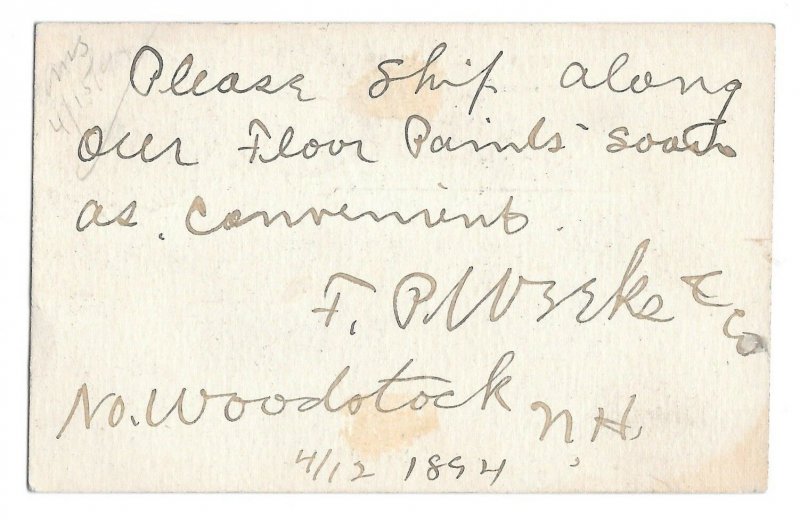 Please Ship along
our Floor Paints soon
as. Convenient.
F. P. Weeks & Co
No. Woodstock N.H.
4/12 1894